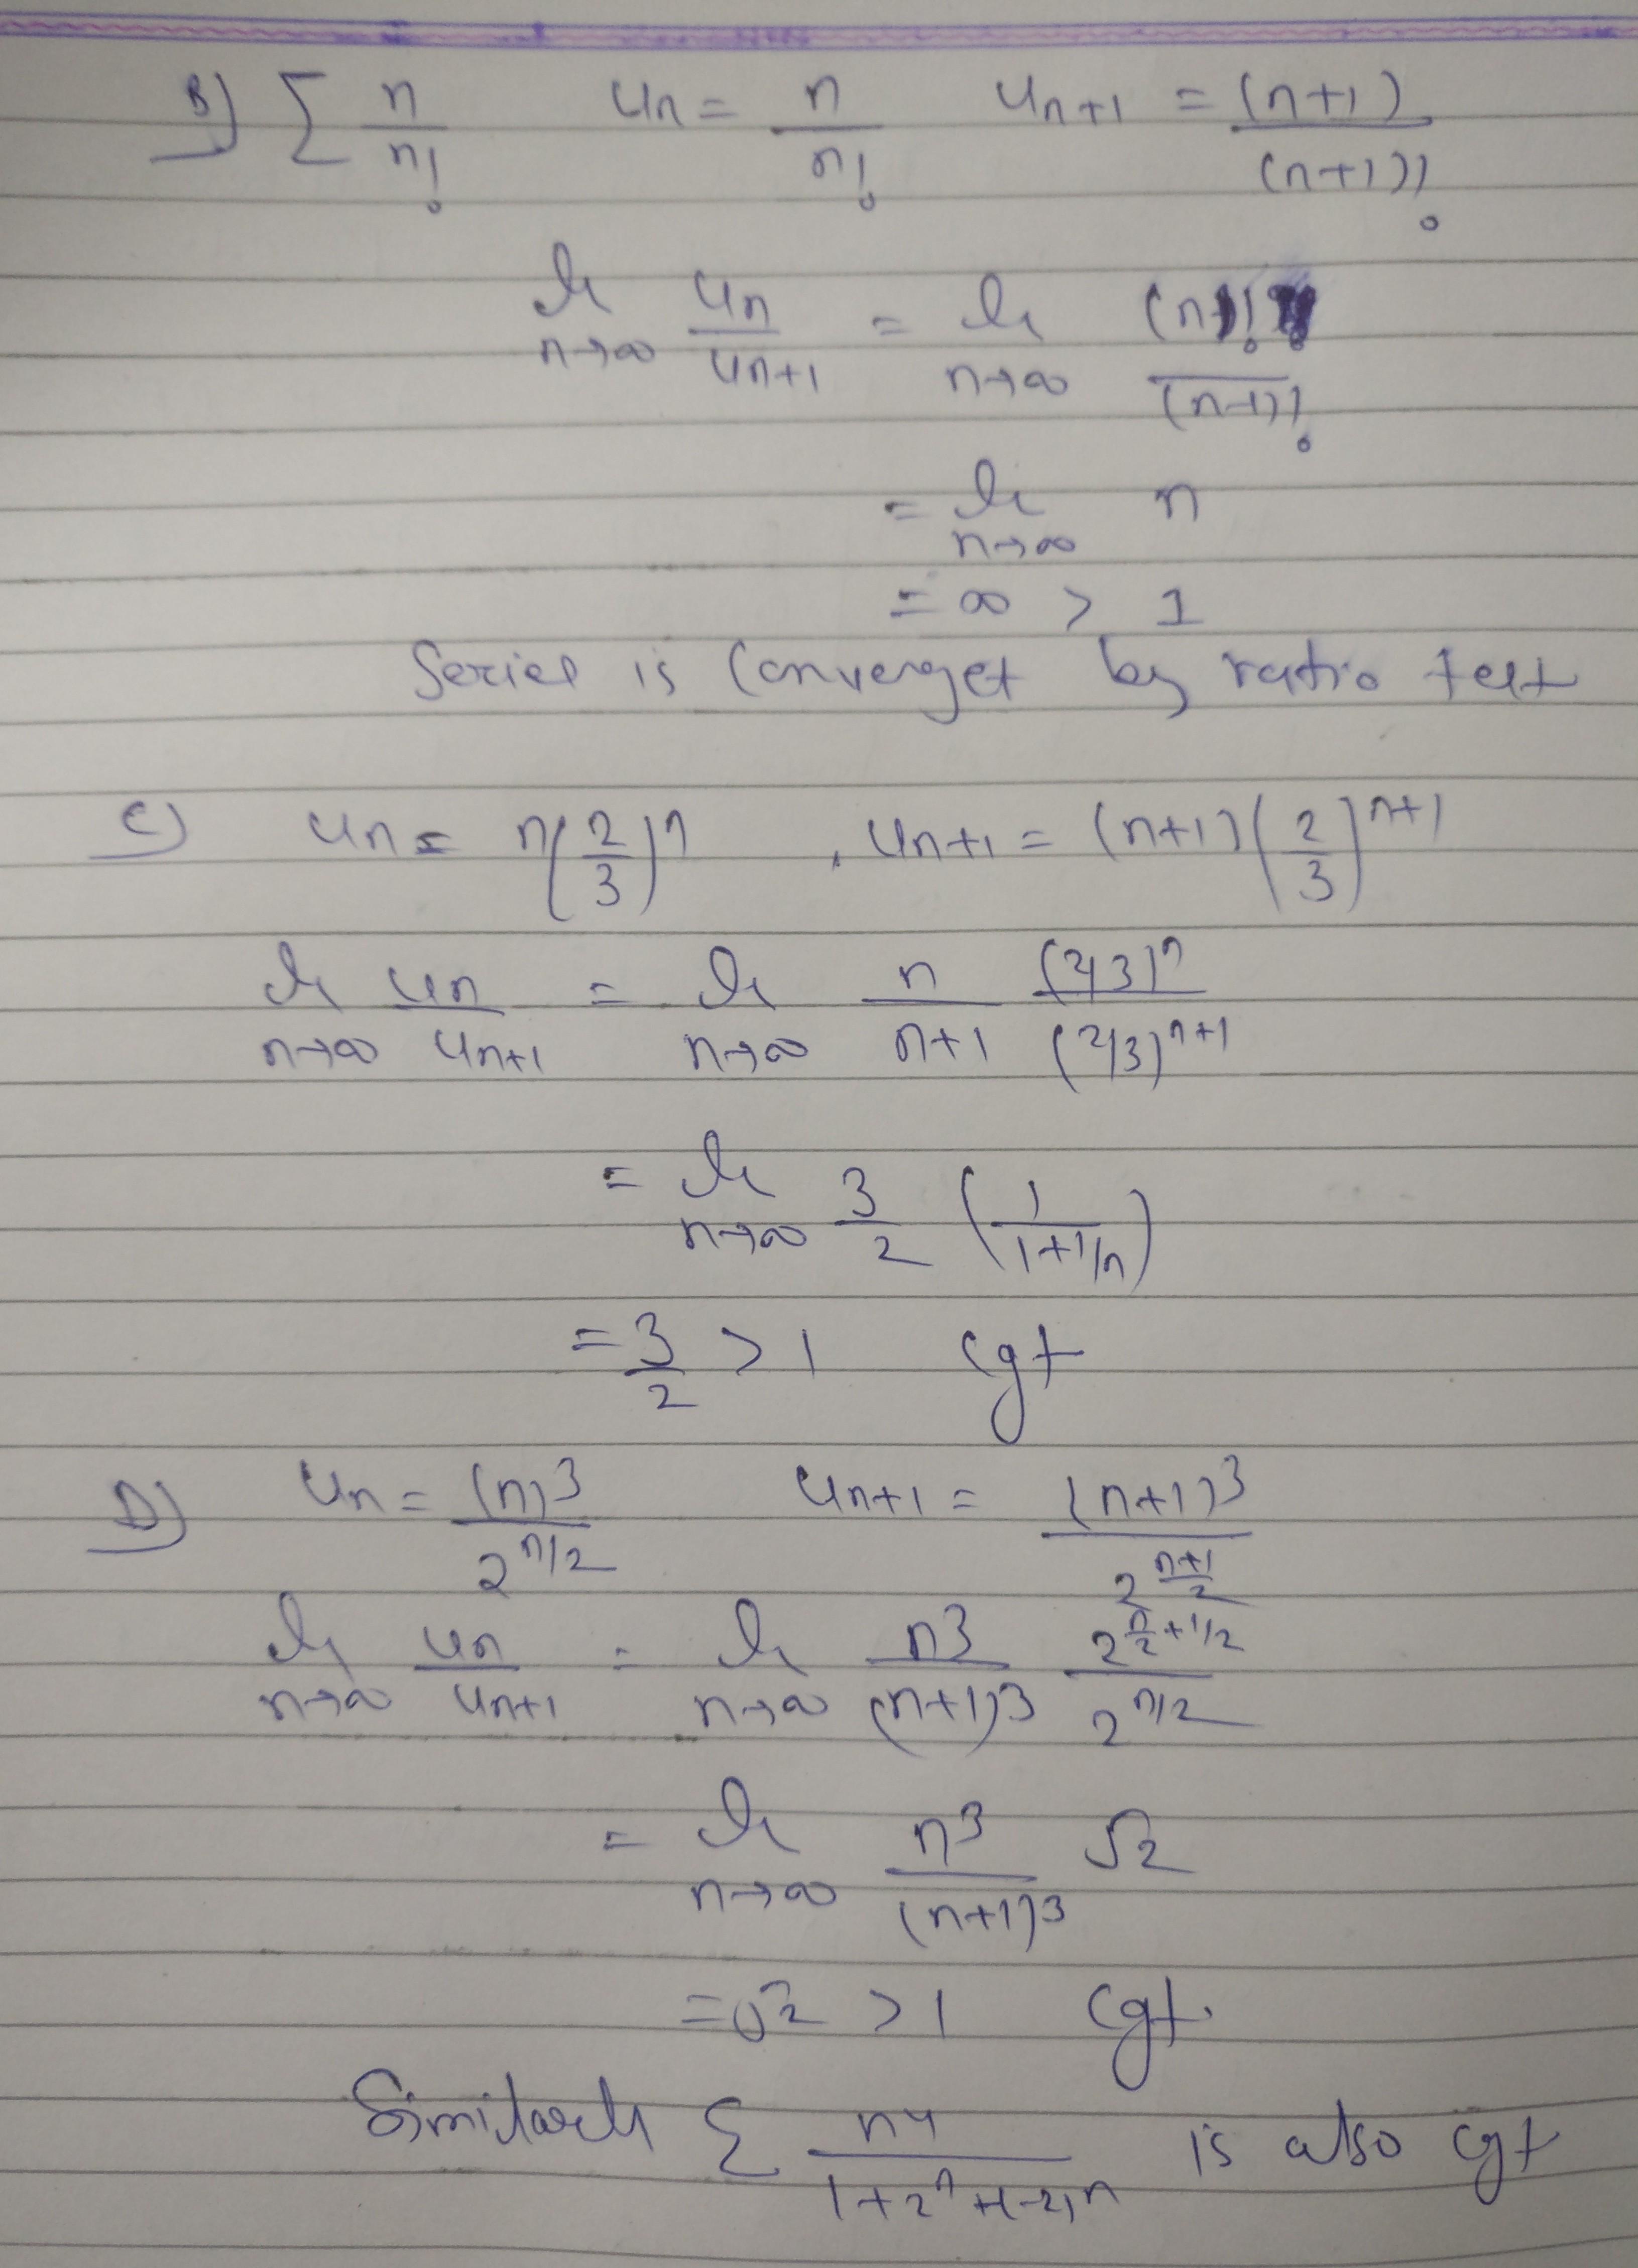 B) ∑ n/n!   un = n/n!   un+1 = (n+1)/(n+1)!
lt n→∞ un/un+1 = lt n→∞ (n)!/(n-1)!
= lt n→∞ n
= ∞ > 1
Series is converget by ratio test
C) un = n(2/3)^n , un+1 = (n+1)(2/3)^(n+1)
lt n→∞ un/un+1 = lt n→∞ n/(n+1) (2/3)^n/(2/3)^(n+1)
= lt n→∞ 3/2 (1/(1+1/n))
= 3/2 > 1   cgt
D) un = (n)^3/2^(n/2)   un+1 = (n+1)^3/2^((n+1)/2)
lt n→∞ un/un+1 = lt n→∞ n^3/(n+1)^3 2^(n/2+1/2)/2^(n/2)
= lt n→∞ n^3/(n+1)^3 √2
= √2 > 1   cgt.
Similarly ∑ n^4/(1+2^n+(-2)^n) is also cgt